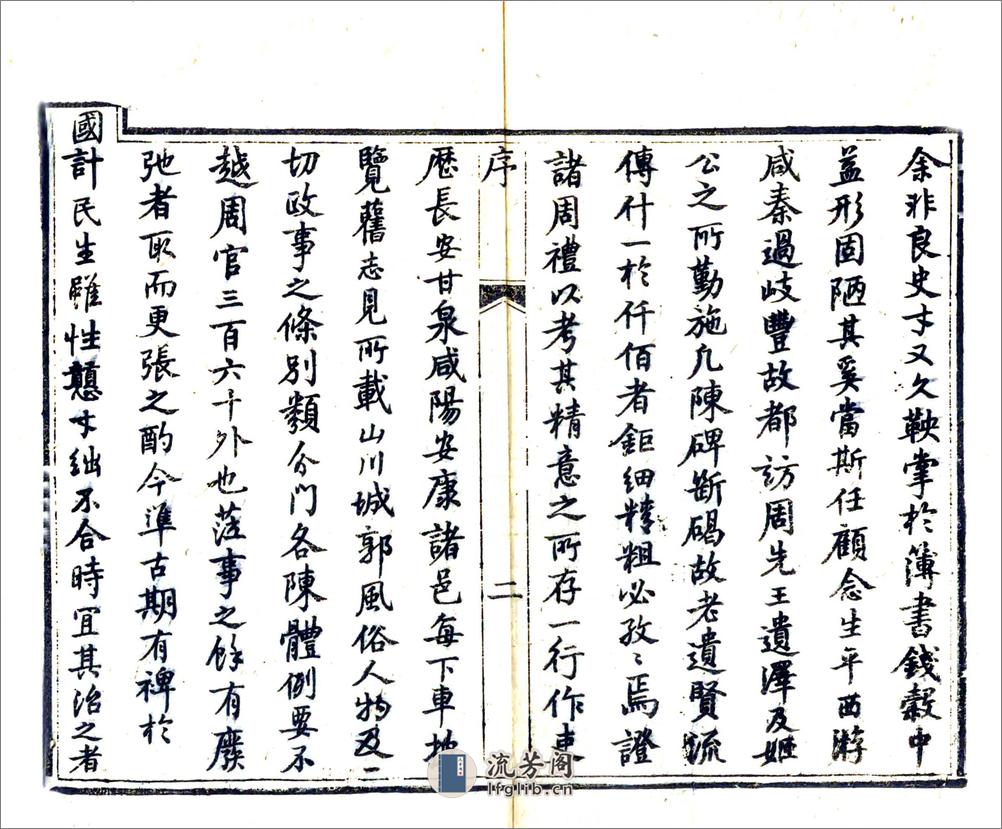 余非良史才又久鞅掌於簿書錢穀中
益形固陋其奚當斯任顧念生平西游
咸秦過岐豐故都訪周先王遺澤及姬
公之所勤施凡陳碑斷碣故老遺賢流
傳什一於仟佰者鉅細精粗必孜〻焉證
諸周禮以考其精意之所存一行作吏
序
二
歷長安甘泉咸陽安康諸邑每下車地
覽舊志見所載山川城郭風俗人物及一
切政事之條別類分門各陳體例要不
越周官三百六十外也蒞事之餘有廢
弛者取而更張之酌今準古期有裨於
國計民生雖性戇才絀不合時宜其治之者
流芳阁
lfglib.cn